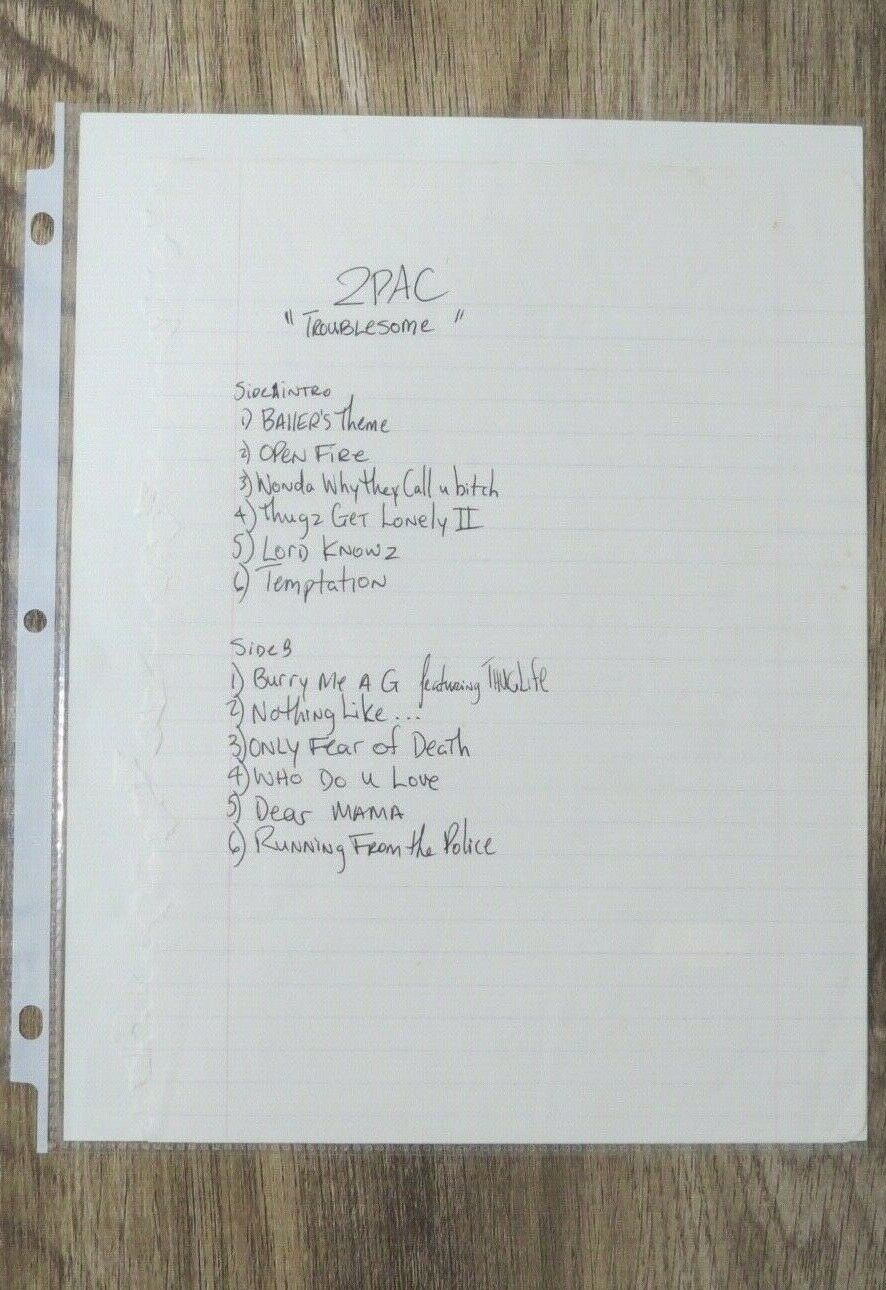 2PAC
"TROUBLESOME"
SIDE A INTRO
1) BALLER'S Theme
2) OPEN FIRE
3) Wonda Why they Call u bitch
4) Thugz GET LONELY II
5) LORD KNOWZ
6) Temptation
SIDE B
1) Burry Me A G featuring THUG LIFE
2) Nothing Like...
3) ONLY Fear of Death
4) WHO DO U LOVE
5) Dear MAMA
6) RUNNING FROM the Police